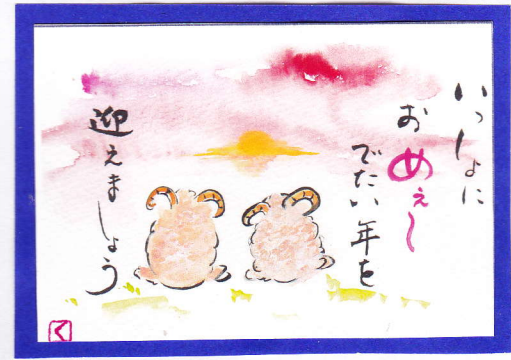 いっしょに
おめぇ〜
でたい年を
迎えましょう
く